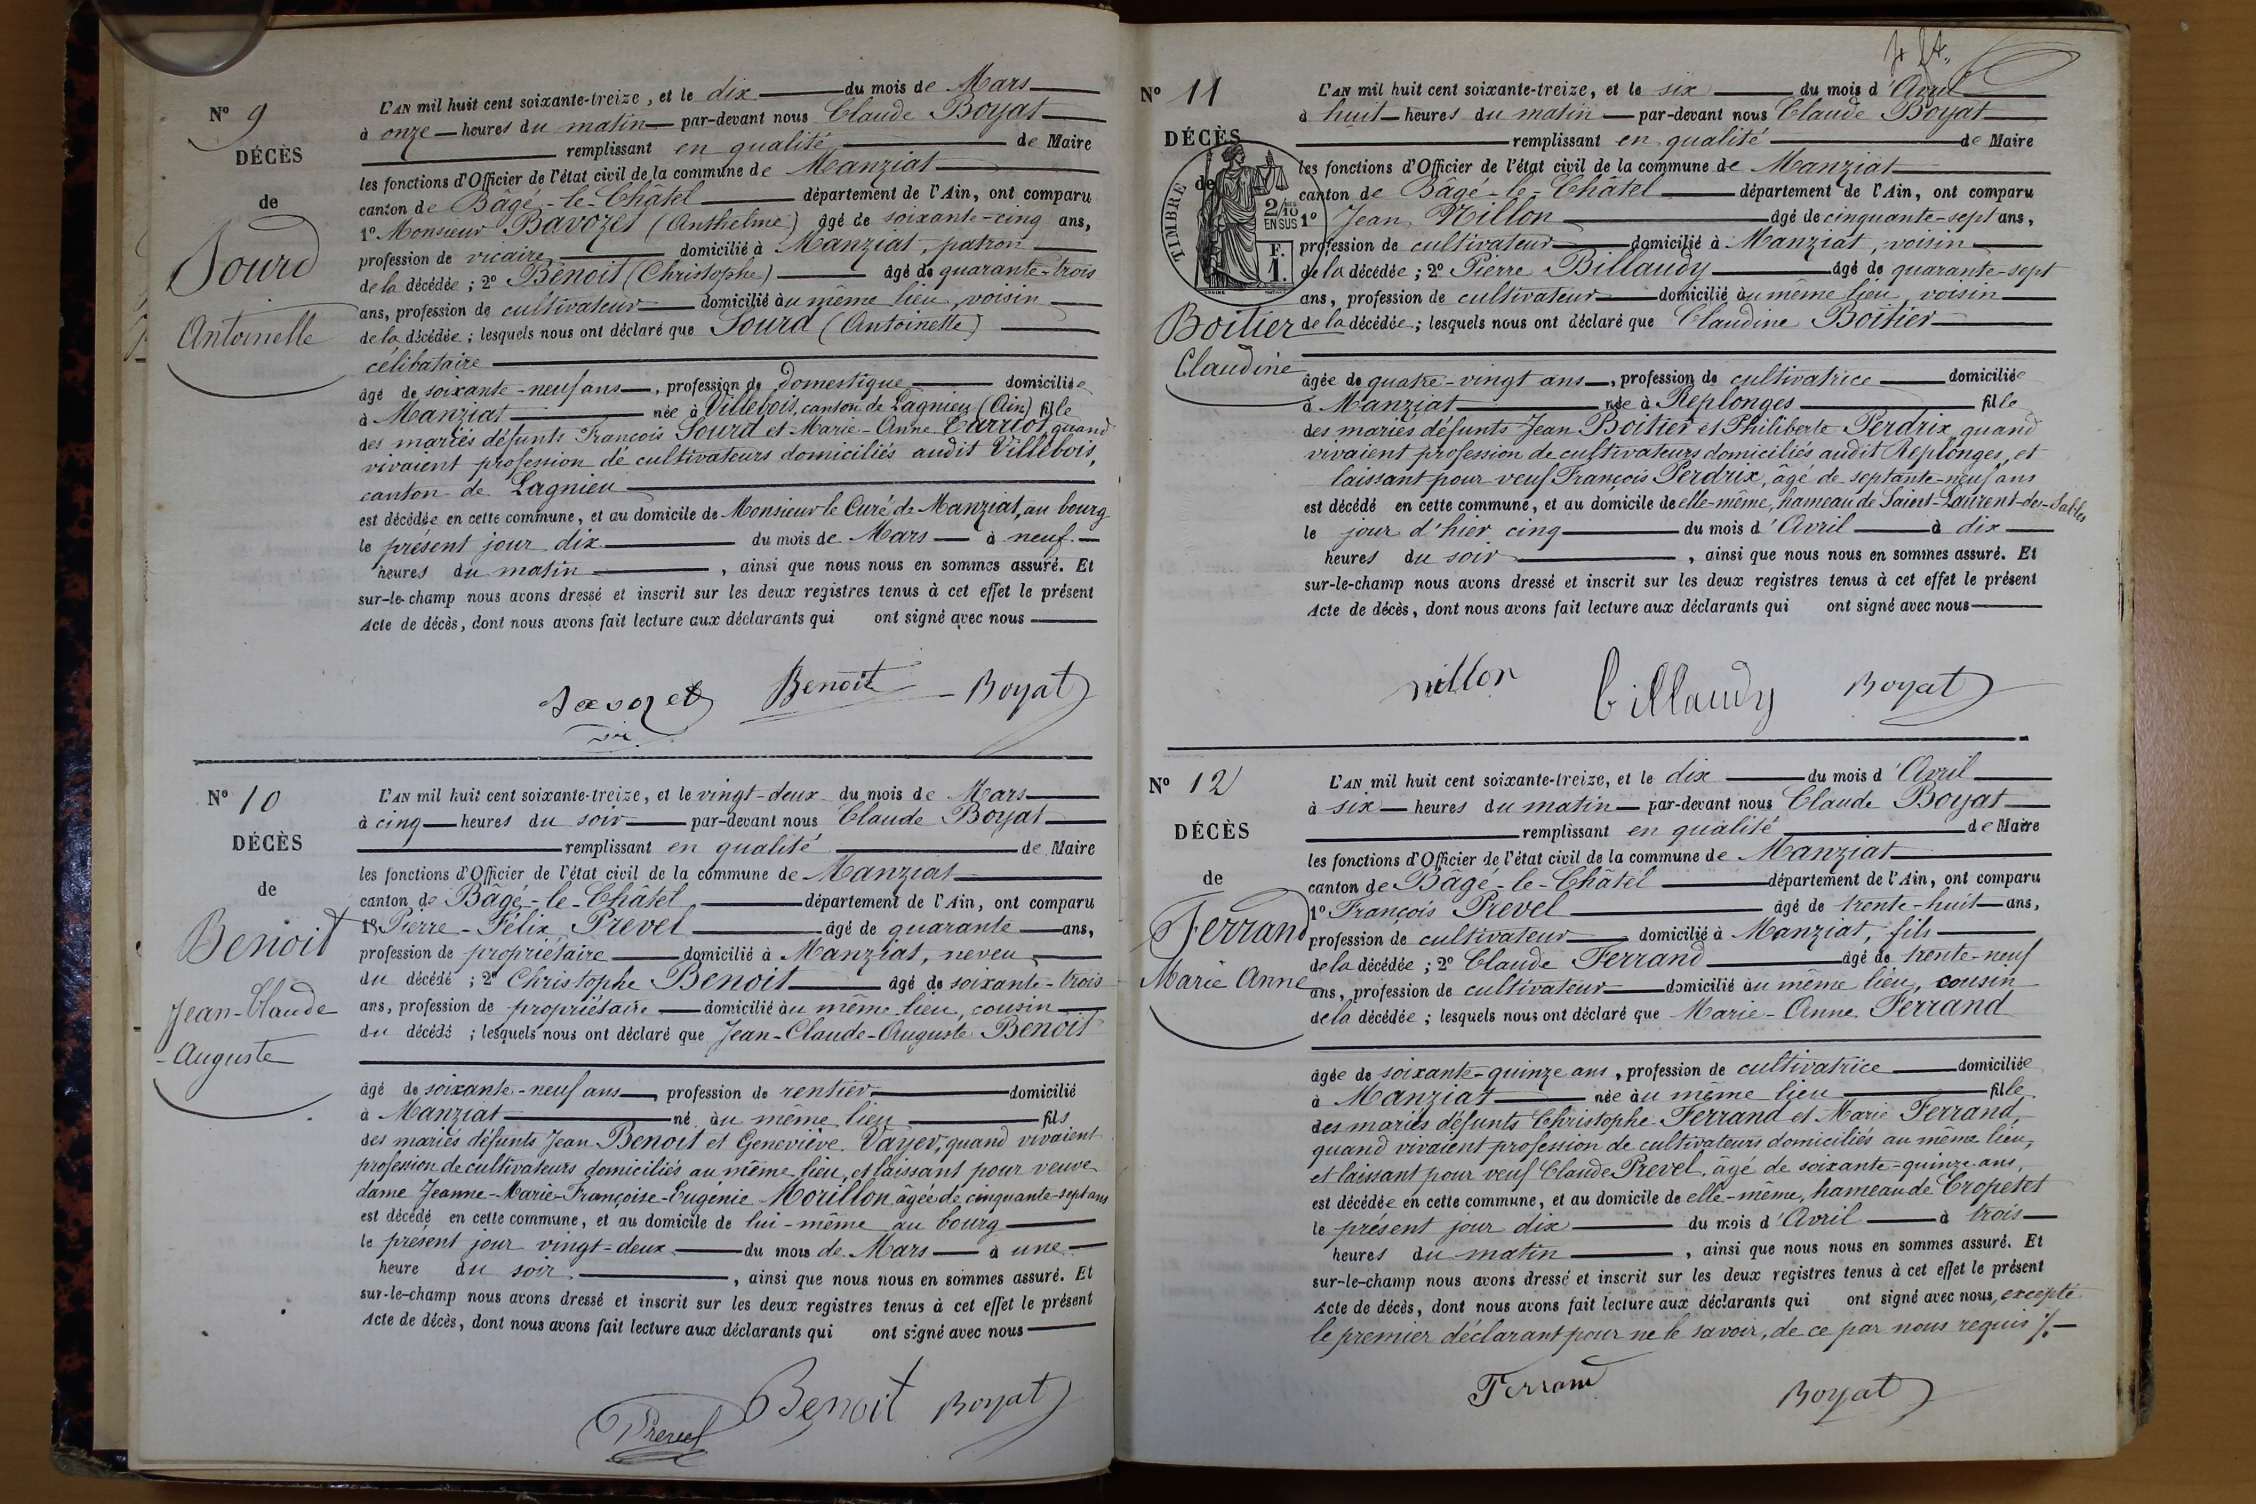 N° 9
DÉCÈS
de
Sourd
Antoinette
L'AN mil huit cent soixante-treize, et le dix du mois de Mars
à onze heures du matin par-devant nous Claude Boyat
remplissant en qualité de Maire
les fonctions d'Officier de l'état civil de la commune de Manziat
canton de Bâgé-le-Châtel département de l'Ain, ont comparu
1° Monsieur Bavozet (Anthelme) âgé de soixante-cinq ans,
profession de vicaire domicilié à Manziat, patron
de la décédée ; 2° Benoit (Christophe) âgé de quarante-trois
ans, profession de cultivateur domicilié au même lieu, voisin
de la décédée ; lesquels nous ont déclaré que Sourd (Antoinette)
célibataire
âgé de soixante-neuf ans, profession de domestique domiciliée
à Manziat née à Villebois, canton de Lagnieu (Ain) fille
des mariés défunts François Sourd et Marie-Anne Carriot, quand
vivaient profession de cultivateurs domiciliés audit Villebois,
canton de Lagnieu
est décédée en cette commune, et au domicile de Monsieur le Curé de Manziat, au bourg
le présent jour dix du mois de Mars à neuf
heures du matin, ainsi que nous nous en sommes assuré. Et
sur-le-champ nous avons dressé et inscrit sur les deux registres tenus à cet effet le présent
Acte de décès, dont nous avons fait lecture aux déclarants qui ont signé avec nous
Bavozet Benoit Boyat
N° 10
DÉCÈS
de
Benoit
Jean-Claude
-Auguste
L'AN mil huit cent soixante-treize, et le vingt-deux du mois de Mars
à cinq heures du soir par-devant nous Claude Boyat
remplissant en qualité de Maire
les fonctions d'Officier de l'état civil de la commune de Manziat
canton de Bâgé-le-Châtel département de l'Ain, ont comparu
1° Pierre-Félix Prevel âgé de quarante ans,
profession de propriétaire domicilié à Manziat, neveu
du décédé ; 2° Christophe Benoit âgé de soixante-trois
ans, profession de propriétaire domicilié au même lieu, cousin
du décédé ; lesquels nous ont déclaré que Jean-Claude-Auguste Benoit
âgé de soixante-neuf ans, profession de rentier domicilié
à Manziat né au même lieu fils
des mariés défunts Jean Benoit et Geneviève Vayer, quand vivaient
profession de cultivateurs domiciliés au même lieu, et laissant pour veuve
dame Jeanne-Marie-Françoise-Eugénie Morillon, âgée de cinquante-sept ans
est décédé en cette commune, et au domicile de lui-même au bourg
le présent jour vingt-deux du mois de Mars à une
heure du soir, ainsi que nous nous en sommes assuré. Et
sur-le-champ nous avons dressé et inscrit sur les deux registres tenus à cet effet le présent
Acte de décès, dont nous avons fait lecture aux déclarants qui ont signé avec nous
Prevel Benoit Boyat
N° 11
DÉCÈS
de
TIMBRE
2/10
EN SUS
F.
1.
Boitier
Claudine
L'AN mil huit cent soixante-treize, et le six du mois d'Avril
à huit heures du matin par-devant nous Claude Boyat
remplissant en qualité de Maire
les fonctions d'Officier de l'état civil de la commune de Manziat
canton de Bâgé-le-Châtel département de l'Ain, ont comparu
1° Jean Nillon âgé de cinquante-sept ans,
profession de cultivateur domicilié à Manziat, voisin
de la décédée ; 2° Pierre Billaudy âgé de quarante-sept
ans, profession de cultivateur domicilié au même lieu, voisin
de la décédée ; lesquels nous ont déclaré que Claudine Boitier
âgée de quatre-vingt ans, profession de cultivatrice domiciliée
à Manziat née à Replonges fille
des mariés défunts Jean Boitier et Philiberte Perdrix, quand
vivaient profession de cultivateurs domiciliés audit Replonges, et
laissant pour veuf François Perdrix, âgé de septante-neuf ans
est décédé en cette commune, et au domicile de elle-même, hameau de Saient-Laurent-des-Sables
le jour d'hier cinq du mois d'Avril à dix
heures du soir, ainsi que nous nous en sommes assuré. Et
sur-le-champ nous avons dressé et inscrit sur les deux registres tenus à cet effet le présent
Acte de décès, dont nous avons fait lecture aux déclarants qui ont signé avec nous
nillon billaudy Boyat
N° 12
DÉCÈS
de
Ferrand
Marie Anne
L'AN mil huit cent soixante-treize, et le dix du mois d'Avril
à six heures du matin par-devant nous Claude Boyat
remplissant en qualité de Maire
les fonctions d'Officier de l'état civil de la commune de Manziat
canton de Bâgé-le-Châtel département de l'Ain, ont comparu
1° François Prevel âgé de trente-huit ans,
profession de cultivateur domicilié à Manziat, fils
de la décédée ; 2° Claude Ferrand âgé de trente-neuf
ans, profession de cultivateur domicilié au même lieu, cousin
de la décédée ; lesquels nous ont déclaré que Marie-Anne Ferrand
âgée de soixante-quinze ans, profession de cultivatrice domiciliée
à Manziat née au même lieu fille
des mariés défunts Christophe Ferrand et Marie Ferrand,
quand vivaient profession de cultivateurs domiciliés au même lieu,
et laissant pour veuf Claude Prevel, âgé de soixante-quinze ans,
est décédée en cette commune, et au domicile de elle-même, hameau de Cropetet
le présent jour dix du mois d'Avril à trois
heures du matin, ainsi que nous nous en sommes assuré. Et
sur-le-champ nous avons dressé et inscrit sur les deux registres tenus à cet effet le présent
Acte de décès, dont nous avons fait lecture aux déclarants qui ont signé avec nous, excepté
le premier déclarant pour ne le savoir, de ce par nous requis
Ferrand Boyat